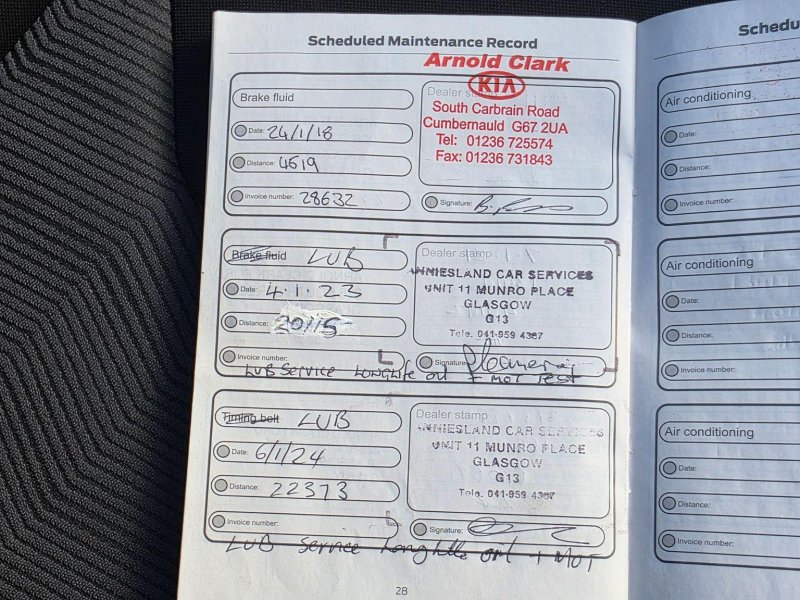 Scheduled Maintenance Record
Arnold Clark
KIA
South Carbrain Road
Cumbernauld G67 2UA
Tel: 01236 725574
Fax: 01236 731843
Brake fluid
Date: 24/1/18
Distance: 4519
Invoice number: 28632
Dealer stamp
Signature:
Brake fluid LUB
Date: 4.1.23
Distance: 20115
Invoice number:
Dealer stamp
ANNIESLAND CAR SERVICES
UNIT 11 MUNRO PLACE
GLASGOW
G13
Tele. 041-959 4367
Signature:
LUB SERVICE LONGLIFE oil + MOT TEST
Timing belt LUB
Date: 6/1/24
Distance: 22373
Invoice number:
Dealer stamp
ANNIESLAND CAR SERVICES
UNIT 11 MUNRO PLACE
GLASGOW
G13
Tele. 041-959 4367
Signature:
LUB Service Longlife oil + MOT
28
Schedu
Air conditioning
Date:
Distance:
Invoice number:
Air conditioning
Date:
Distance:
Invoice number:
Air conditioning
Date:
Distance:
Invoice number: